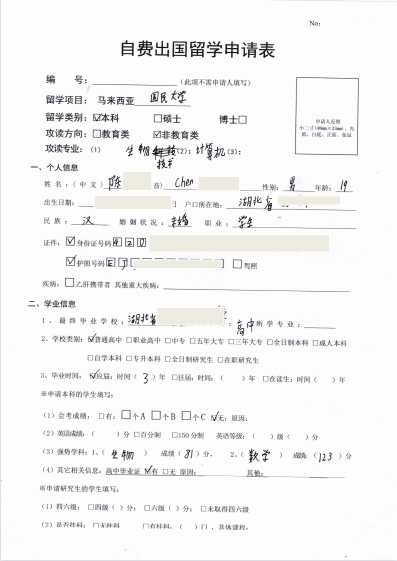 No:
自费出国留学申请表
编 号: （此项不需申请人填写）
留学项目： 马来西亚 国民大学
留学类别：☑本科 □硕士 博士□
攻读方向：□教育类 ☑非教育类
攻读专业：（1） 生物 技术 （2）：计算机（3）：
申请人近照
一、个人信息
姓 名：（中 文） 陈 音) Chen 性别： 男 年龄： 19
出生日期： 日 户口所在地： 湖北省
民 族： 汉 婚 姻 状 况： 未婚 职 业： 学生
证件： ☑身份证号码 4 2 0
☑护照号码 E J □驾照
疾病：□乙肝携带者 其他重大疾病：
二、学业信息
1、最 终 毕 业 学 校：湖北省 高中 所 学 专 业：
2、学校类别：☑普通高中 □职业高中 □中专 □五年大专 □三年大专 □全日制本科 □成人本科
□自学本科 □专升本科 □全日制研究生 □在职研究生
3、毕业时间： ☑应届：时间（ 3 ）年 □往届：时间：（ ）年 □在读生：时间（ ）年
※申请本科的学生填写：
（1）会考成绩： □有：□个 A □个 B □个 C ☑无：原因：
（2）英语成绩：（ ）分 □百分制 □150 分制 英语等级：（ ）级（ ）分
（3）强势学科：1、（ 生物 ） 成绩（ 81 ）分， 2、（ 数学 ） 成绩：（ 123 ）分
（4）其它相关信息：高中毕业证 ☑有 □无 原因： 其他：
※申请研究生的学生填写：
（1）四六级： □四级（ ）分： □六级（ ）分： □未取得四六级
（2）是否挂科： □无挂科 □有挂科：（ ）门 ，具体课程：